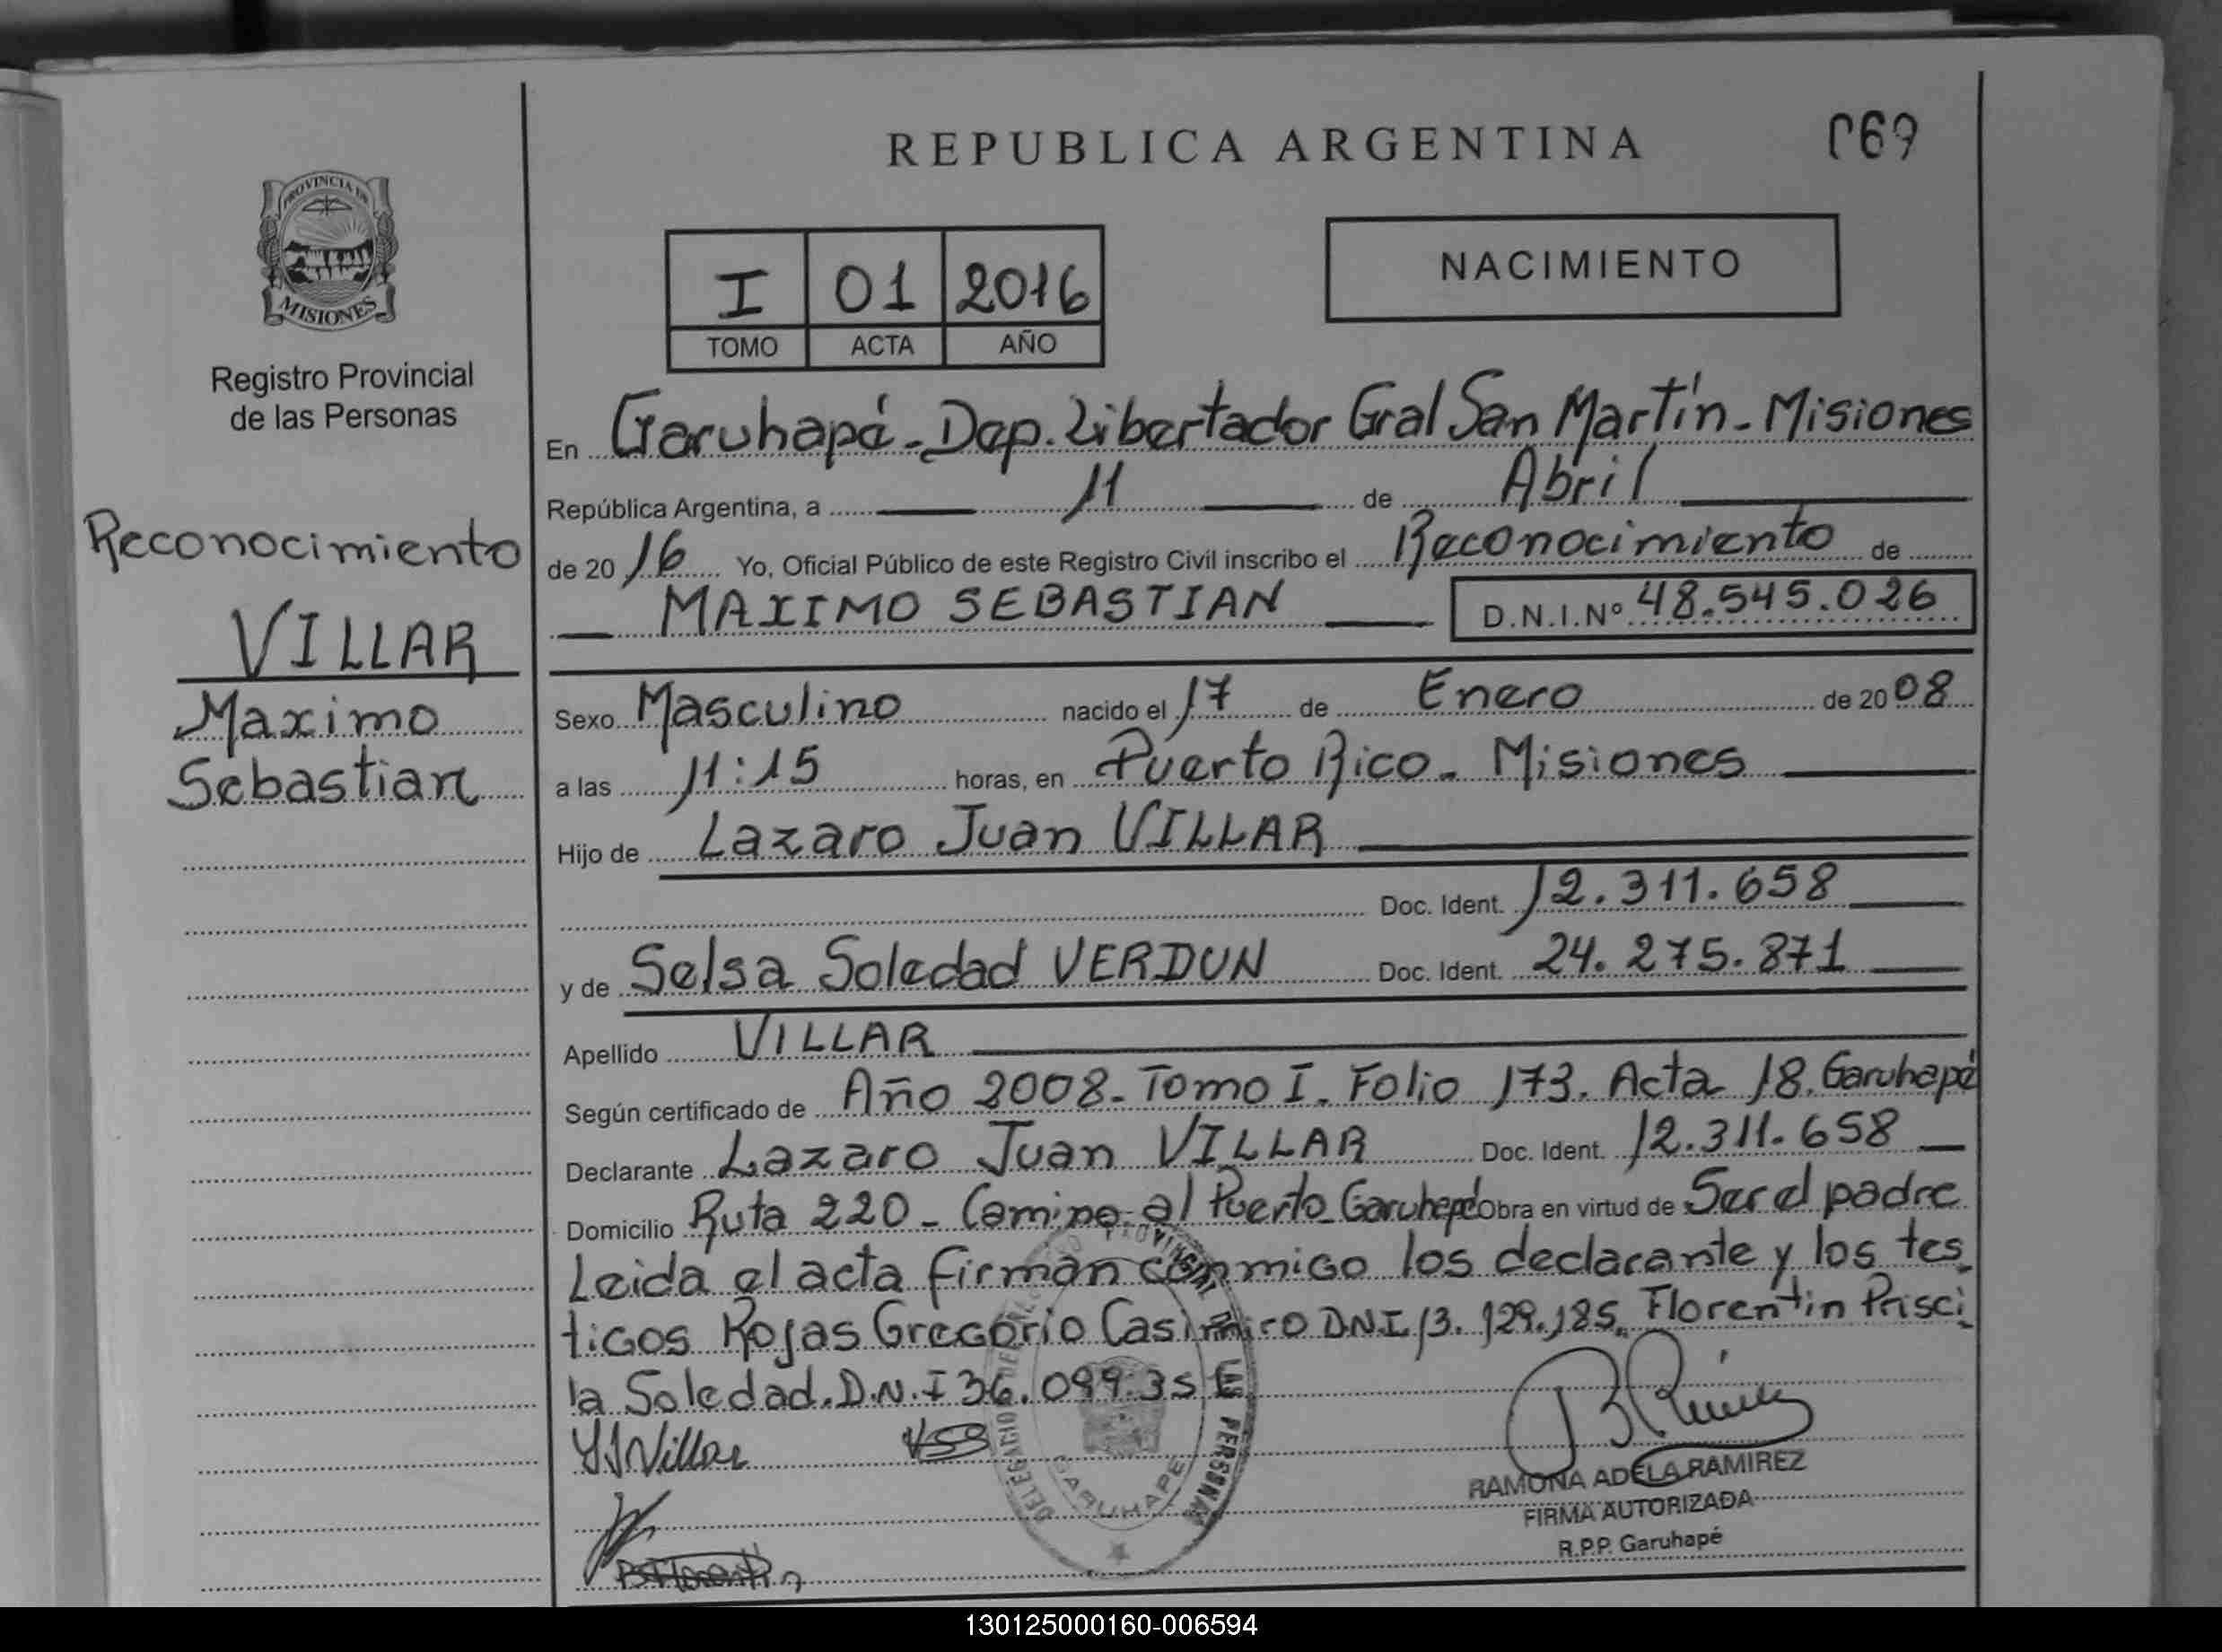 REPUBLICA ARGENTINA
069
PROVINCIA DE
MISIONES
Registro Provincial
de las Personas
I 01 2016
TOMO ACTA AÑO
NACIMIENTO
Reconocimiento
VILLAR
Maximo
Sebastian
En Garuhapé - Dep. Libertador Gral San Martín - Misiones
República Argentina, a 11 de Abril
de 2016 Yo, Oficial Público de este Registro Civil inscribo el Reconocimiento de
MAXIMO SEBASTIAN D.N.I.Nº 48.545.026
Sexo Masculino nacido el 17 de Enero de 2008
a las 11:15 horas, en Puerto Rico - Misiones
Hijo de Lazaro Juan VILLAR
Doc. Ident. 12.311.658
y de Selsa Soledad VERDUN Doc. Ident. 24.275.871
Apellido VILLAR
Según certificado de Año 2008 - Tomo I. Folio 173. Acta 18. Garuhapé
Declarante Lazaro Juan VILLAR Doc. Ident. 12.311.658
Domicilio Ruta 220 - Camino al Puerto Garuhapé Obra en virtud de Ser el padre
Leida el acta firman conmigo los declarante y los tes
tigos Rojas Gregorio Casimiro DNI 13.129.185. Florentin Prisci
la Soledad. D.N.I 36.099.35
Villar VSS
DELEGACIO REGISTRO PROVINCIAL DE LAS PERSONAS
GARUHAPE
RAMONA ADELA RAMIREZ
FIRMA AUTORIZADA
R.P.P. Garuhapé
130125000160-006594